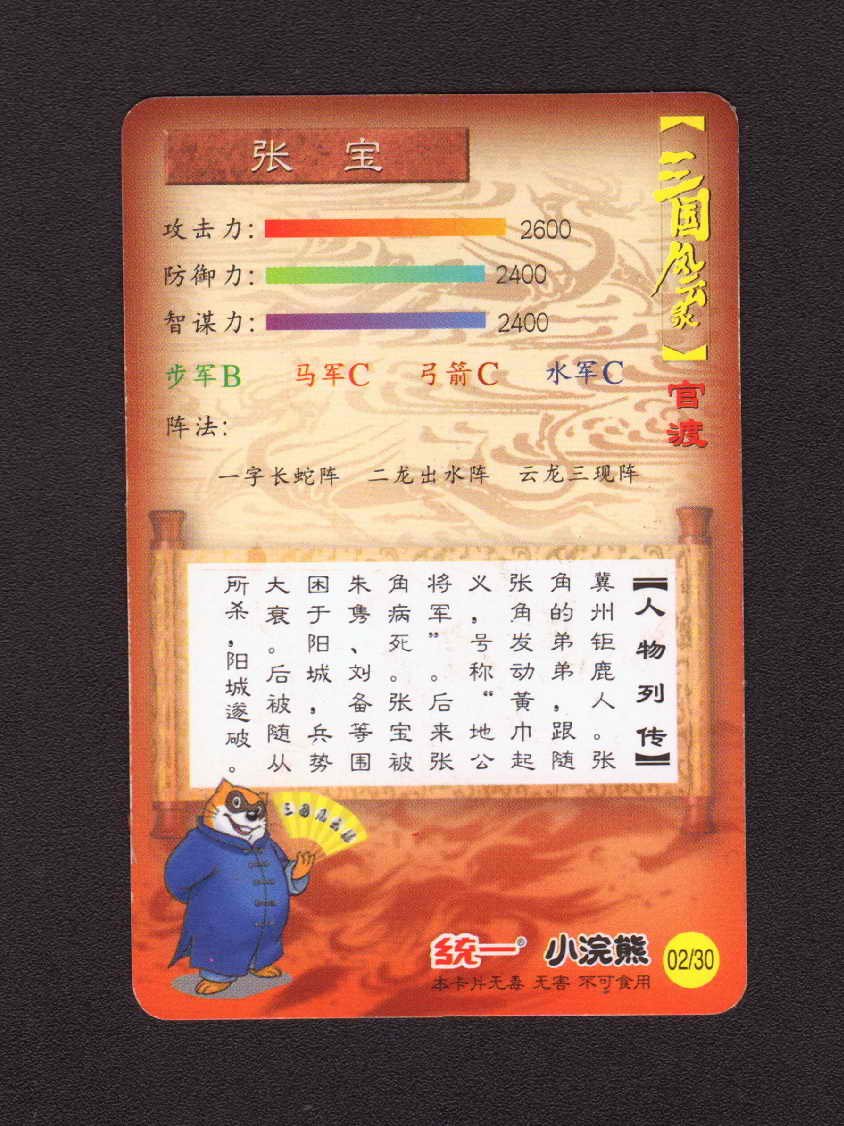 张 宝
攻击力: 2600
防御力: 2400
智谋力: 2400
步军B 马军C 弓箭C 水军C
阵法:
一字长蛇阵 二龙出水阵 云龙三现阵
【三国风云录】
官渡
【人物列传】
冀州钜鹿人。张
角的弟弟，跟随
张角发动黄巾起
义，号称“地公
将军”。后来张
角病死。张宝被
朱隽、刘备等围
困于阳城，兵势
大衰。后被随从
所杀，阳城遂破。
三国风云录
统一® 小浣熊
本卡片无毒 无害 不可食用
02/30